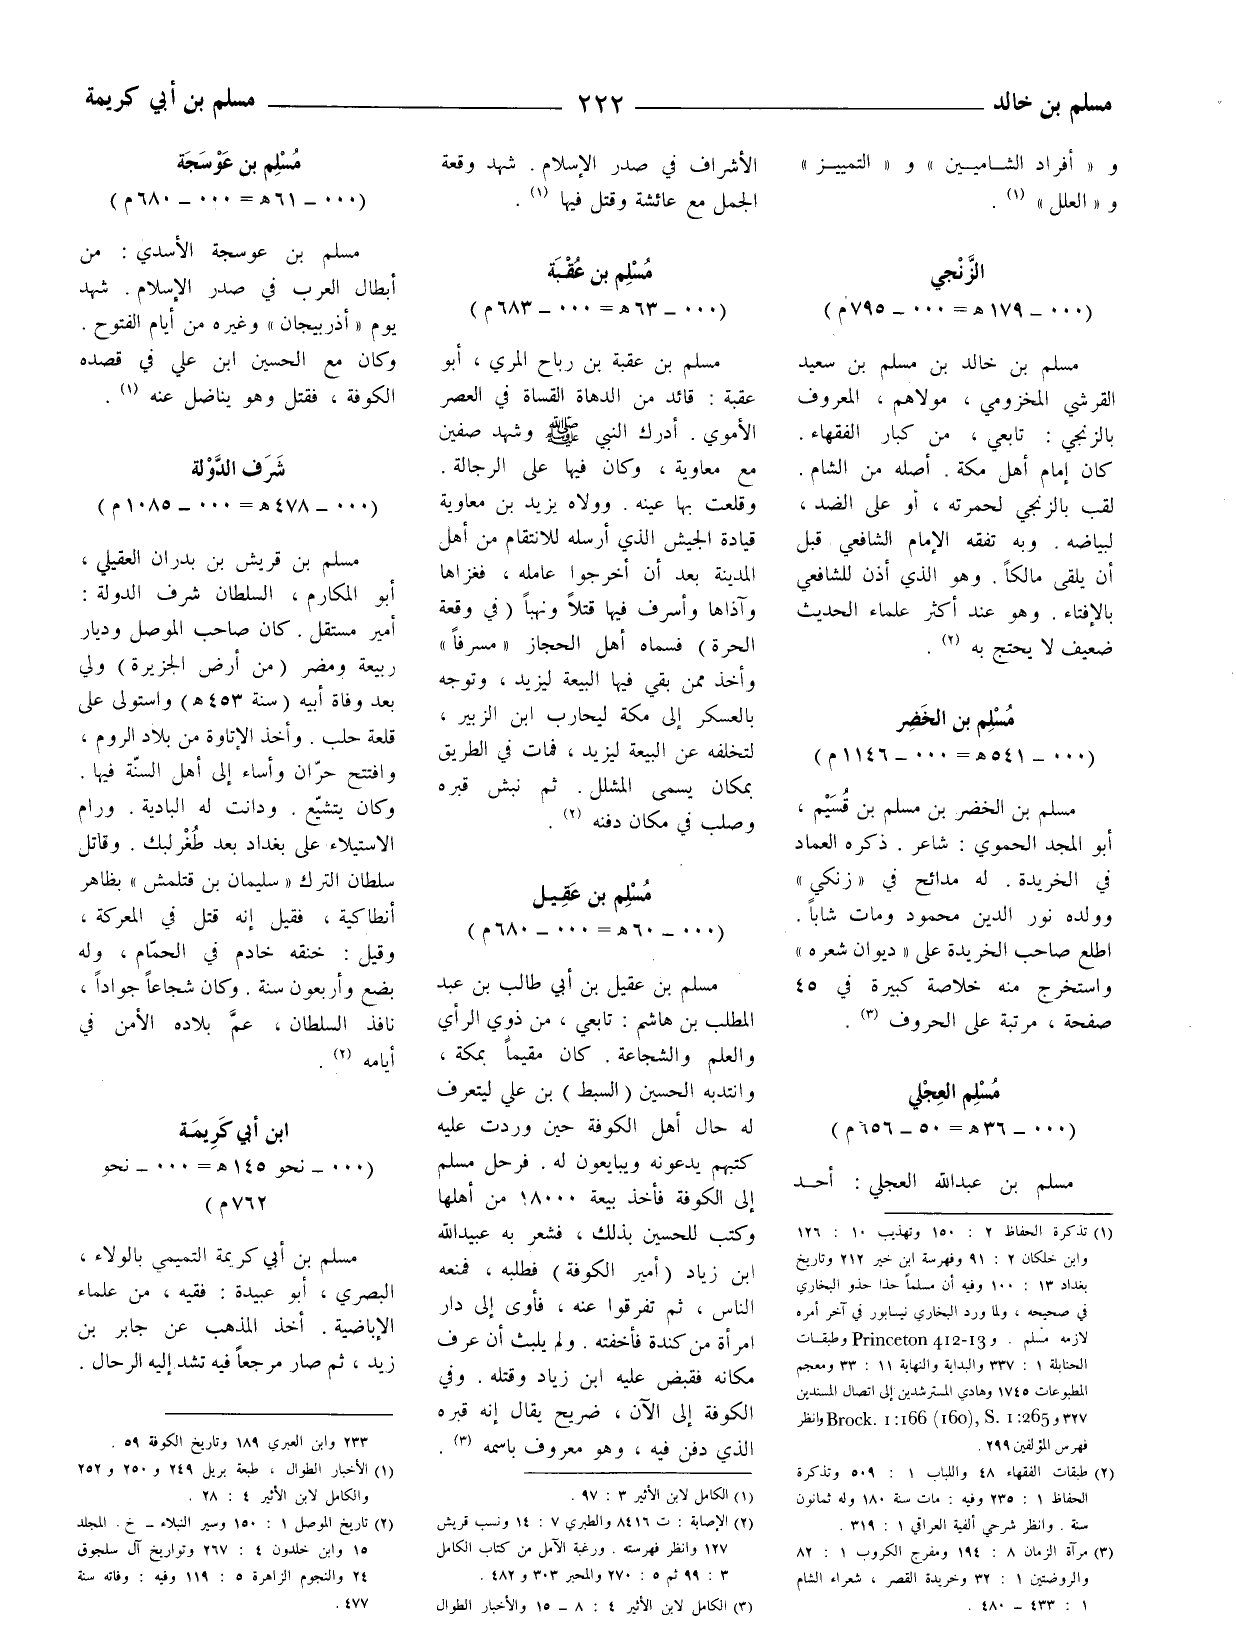 مسلم بن خالد ٢٢٢ مسلم بن أبي كريمة
و « أفراد الشاميين » و « التمييز »
و « العلل » (١) .
الزَّنْجي
(٠٠٠ ــ ١٧٩ هـ = ٠٠٠ ــ ٧٩٥ م)
مسلم بن خالد بن مسلم بن سعيد
القرشي المخزومي ، مولاهم ، المعروف
بالزنجي : تابعي ، من كبار الفقهاء .
كان إمام أهل مكة . أصله من الشام .
لقب بالزنجي لحمرته ، أو على الضد ،
لبياضه . وبه تفقه الإمام الشافعي قبل
أن يلقى مالكاً . وهو الذي أذن للشافعي
بالإفتاء . وهو عند أكثر علماء الحديث
ضعيف لا يحتج به (٢) .
مُسْلِم بن الخَضِر
(٠٠٠ ــ ٥٤١ هـ = ٠٠٠ ــ ١١٤٦ م)
مسلم بن الخضر بن مسلم بن قُسَيْم ،
أبو المجد الحموي : شاعر . ذكره العماد
في الخريدة . له مدائح في « زنكي »
وولده نور الدين محمود ومات شاباً .
اطلع صاحب الخريدة على « ديوان شعره »
واستخرج منه خلاصة كبيرة في ٤٥
صفحة ، مرتبة على الحروف (٣) .
مُسْلِم العِجْلي
(٠٠٠ ــ ٣٦ هـ = ٥٠ ــ ٦٥٦ م)
مسلم بن عبدالله العجلي : أحد
(١) تذكرة الحفاظ ٢ : ١٥٠ وتهذيب ١٠ : ١٢٦
وابن خلكان ٢ : ٩١ وفهرسة ابن خير ٢١٢ وتاريخ
بغداد ١٣ : ١٠٠ وفيه أن مسلماً حذا حذو البخاري
في صحيحه ، ولما ورد البخاري نيسابور في آخر أمره
لازمه مسلم . و Princeton 412-13 وطبقات
الحنابلة ١ : ٣٣٧ والبداية والنهاية ١١ : ٣٣ ومعجم
المطبوعات ١٧٤٥ وهادي المسترشدين إلى اتصال المسندين
٣٢٧ و Brock. 1:166 (160), S. 1:265 وانظر
فهرس المؤلفين ٢٩٩ .
(٢) طبقات الفقهاء ٤٨ واللباب ١ : ٥٠٩ وتذكرة
الحفاظ ١ : ٢٣٥ وفيه : مات سنة ١٨٠ وله ثمانون
سنة . وانظر شرحي ألفية العراقي ١ : ٣١٩ .
(٣) مرآة الزمان ٨ : ١٩٤ ومفرج الكروب ١ : ٨٢
والروضتين ١ : ٣٢ وخريدة القصر ، شعراء الشام
١ : ٤٣٣ ــ ٤٨٠ .
الأشراف في صدر الإسلام . شهد وقعة
الجمل مع عائشة وقتل فيها (١) .
مُسْلِم بن عُقْبَة
(٠٠٠ ــ ٦٣ هـ = ٠٠٠ ــ ٦٨٣ م)
مسلم بن عقبة بن رباح المري ، أبو
عقبة : قائد من الدهاة القساة في العصر
الأموي . أدرك النبي ﷺ وشهد صفين
مع معاوية ، وكان فيها على الرجالة .
وقلعت بها عينه . وولاه يزيد بن معاوية
قيادة الجيش الذي أرسله للانتقام من أهل
المدينة بعد أن أخرجوا عامله ، فغزاها
وآذاها وأسرف فيها قتلاً ونهباً (في وقعة
الحرة) فسماه أهل الحجاز « مسرفاً »
وأخذ ممن بقي فيها البيعة ليزيد ، وتوجه
بالعسكر إلى مكة ليحارب ابن الزبير ،
لتخلفه عن البيعة ليزيد ، فمات في الطريق
بمكان يسمى المشلل . ثم نبش قبره
وصلب في مكان دفنه (٢) .
مُسْلِم بن عَقِيل
(٠٠٠ ــ ٦٠ هـ = ٠٠٠ ــ ٦٨٠ م)
مسلم بن عقيل بن أبي طالب بن عبد
المطلب بن هاشم : تابعي ، من ذوي الرأي
والعلم والشجاعة . كان مقيماً بمكة ،
وانتدبه الحسين (السبط) بن علي ليتعرف
له حال أهل الكوفة حين وردت عليه
كتبهم يدعونه ويبايعون له . فرحل مسلم
إلى الكوفة فأخذ بيعة ١٨٠٠٠ من أهلها
وكتب للحسين بذلك ، فشعر به عبيدالله
ابن زياد (أمير الكوفة) فطلبه ، فمنعه
الناس ، ثم تفرقوا عنه ، فأوى إلى دار
امرأة من كندة فأخفته . ولم يلبث أن عرف
مكانه فقبض عليه ابن زياد وقتله . وفي
الكوفة إلى الآن ، ضريح يقال إنه قبره
الذي دفن فيه ، وهو معروف باسمه (٣) .
(١) الكامل لابن الأثير ٣ : ٩٧ .
(٢) الإصابة : ت ٨٤١٦ والطبري ٧ : ١٤ ونسب قريش
١٢٧ وانظر فهرسته . ورغبة الآمل من كتاب الكامل
٣ : ٩٩ ثم ٥ : ٢٧٠ والمحبر ٣٠٣ و ٤٨٢ .
(٣) الكامل لابن الأثير ٤ : ٨ ــ ١٥ والأخبار الطوال
مُسْلِم بن عَوْسَجَة
(٠٠٠ ــ ٦١ هـ = ٠٠٠ ــ ٦٨٠ م)
مسلم بن عوسجة الأسدي : من
أبطال العرب في صدر الإسلام . شهد
يوم « أذربيجان » وغيره من أيام الفتوح .
وكان مع الحسين ابن علي في قصده
الكوفة ، فقتل وهو يناضل عنه (١) .
شَرَف الدَّوْلة
(٠٠٠ ــ ٤٧٨ هـ = ٠٠٠ ــ ١٠٨٥ م)
مسلم بن قريش بن بدران العقيلي ،
أبو المكارم ، السلطان شرف الدولة :
أمير مستقل . كان صاحب الموصل وديار
ربيعة ومضر (من أرض الجزيرة) ولي
بعد وفاة أبيه (سنة ٤٥٣ هـ) واستولى على
قلعة حلب . وأخذ الإتاوة من بلاد الروم ،
وافتتح حرّان وأساء إلى أهل السنّة فيها .
وكان يتشيّع . ودانت له البادية . ورام
الاستيلاء على بغداد بعد طُغْرلبك . وقاتل
سلطان الترك « سليمان بن قتلمش » بظاهر
أنطاكية ، فقيل إنه قتل في المعركة ،
وقيل : خنقه خادم في الحمّام ، وله
بضع وأربعون سنة . وكان شجاعاً جواداً ،
نافذ السلطان ، عمَّ بلاده الأمن في
أيامه (٢) .
ابن أبي كَرِيمَة
(٠٠٠ ــ نحو ١٤٥ هـ = ٠٠٠ ــ نحو
٧٦٢ م)
مسلم بن أبي كريمة التميمي بالولاء ،
البصري ، أبو عبيدة : فقيه ، من علماء
الإباضية . أخذ المذهب عن جابر بن
زيد ، ثم صار مرجعاً فيه تشد إليه الرحال .
٢٣٣ وابن العبري ١٨٩ وتاريخ الكوفة ٥٩ .
(١) الأخبار الطوال ، طبعة بريل ٢٤٩ و ٢٥٠ و ٢٥٢
والكامل لابن الأثير ٤ : ٢٨ .
(٢) تاريخ الموصل ١ : ١٥٠ وسير النبلاء ــ خ . المجلد
١٥ وابن خلدون ٤ : ٢٦٧ وتواريخ آل سلجوق
٢٤ والنجوم الزاهرة ٥ : ١١٩ وفيه : وفاته سنة
٤٧٧ .